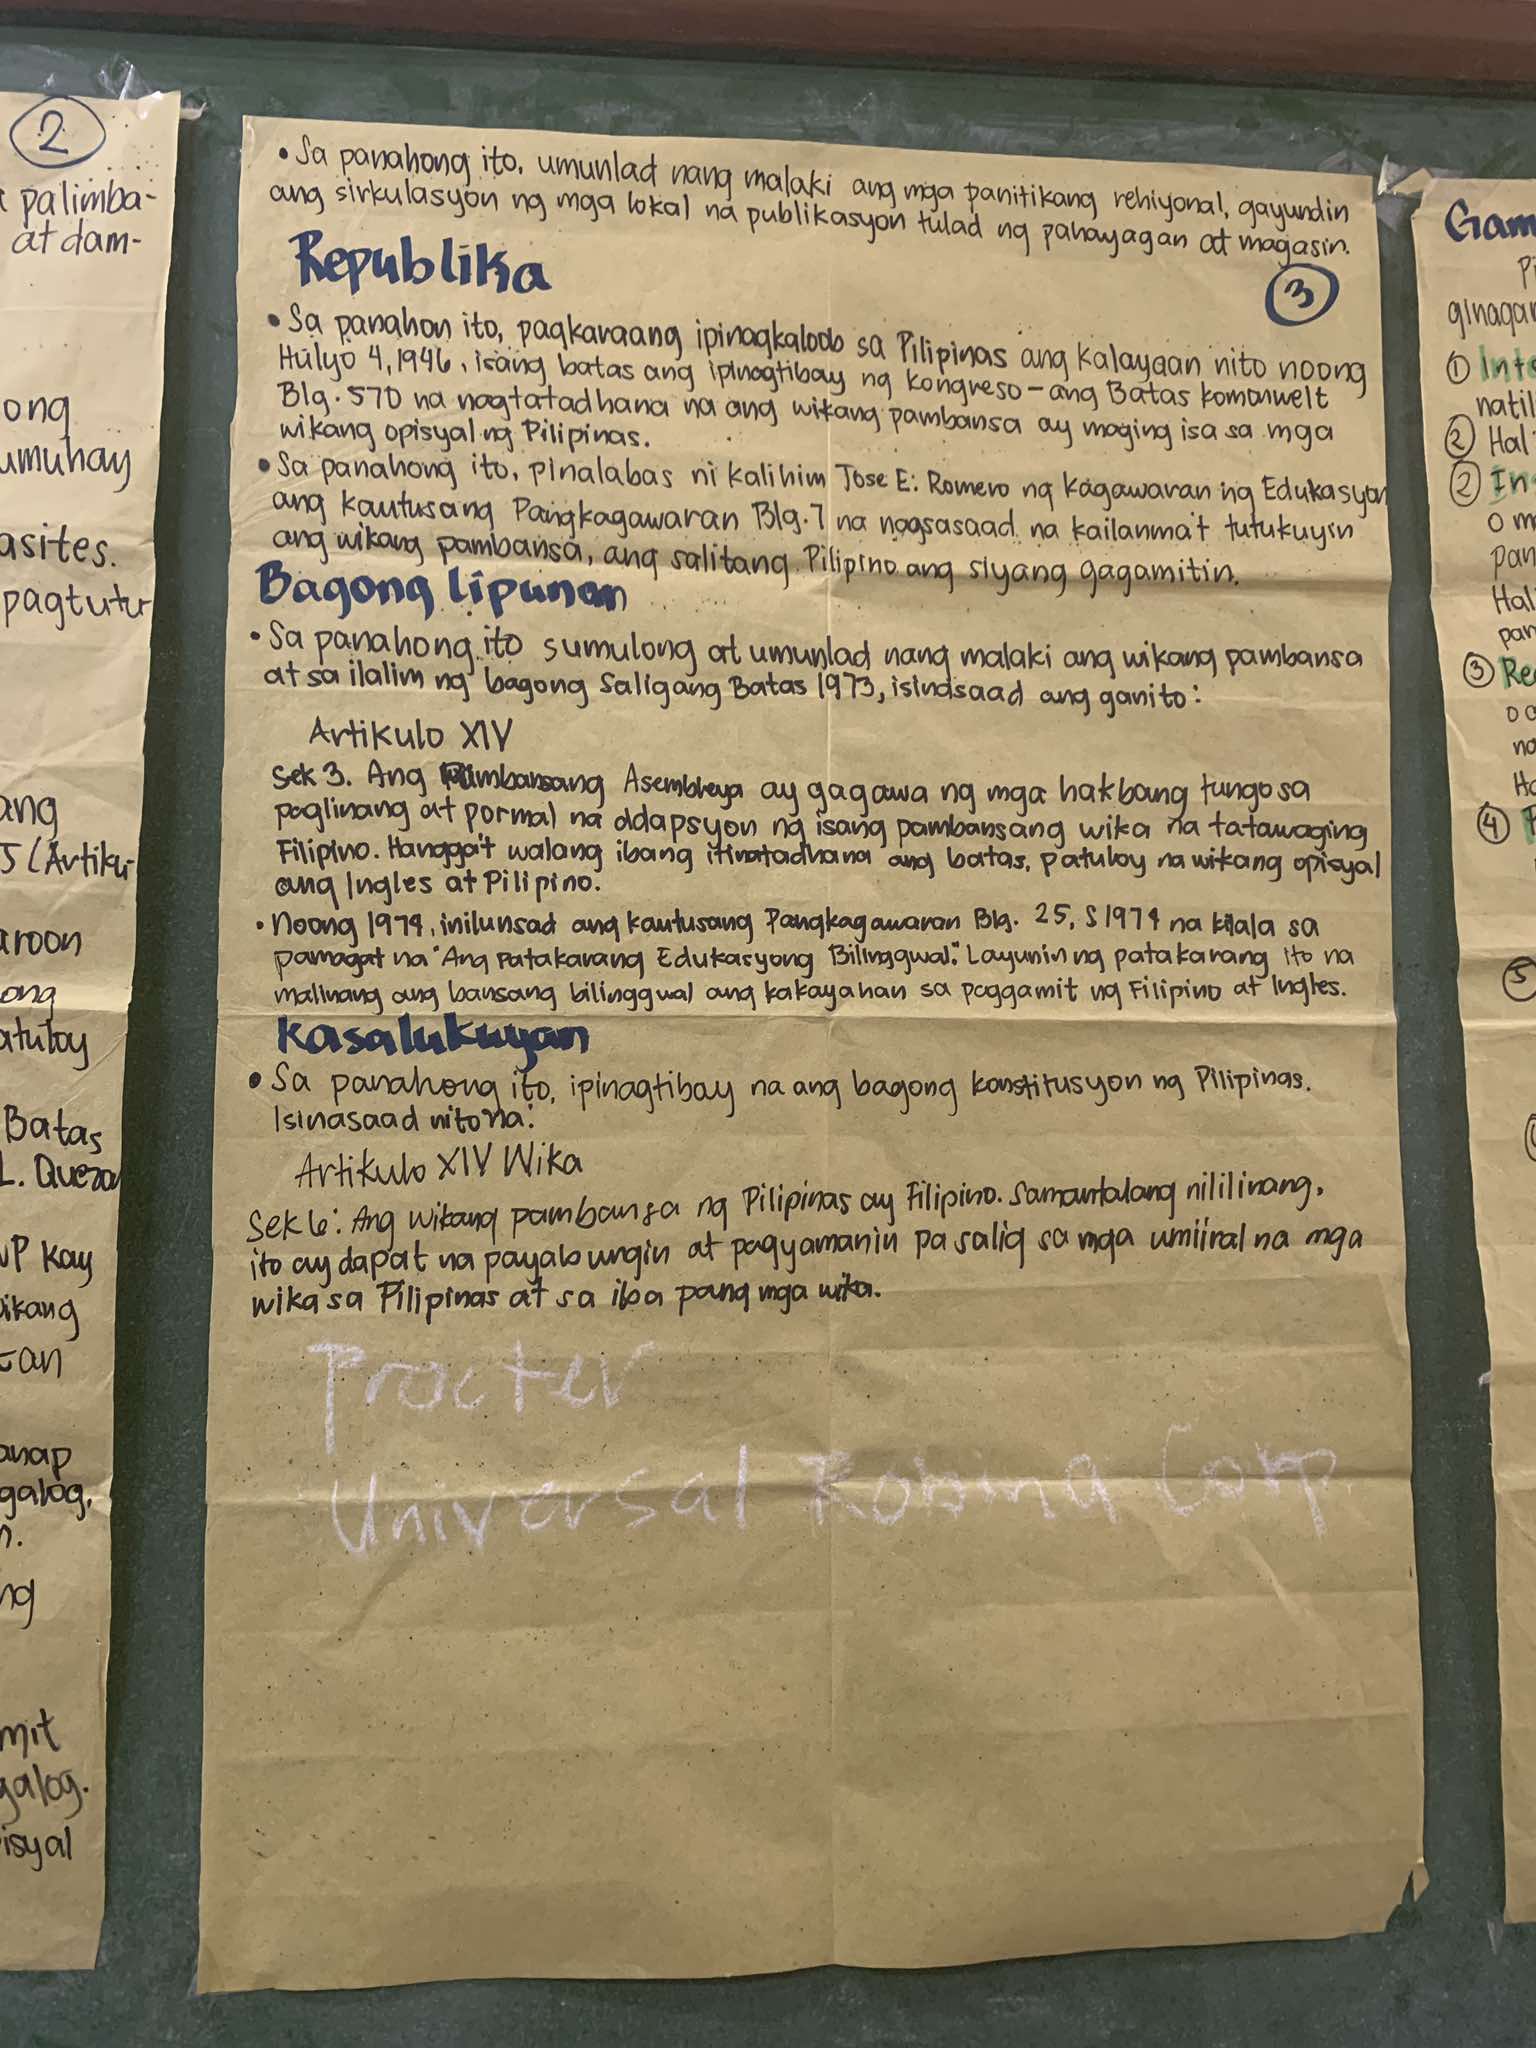 2
palimba-
at dam-
ong
umuhay
asites.
pagtutu
ang
5 (Artiku-
aroon
ong
atuloy
Batas
L. Quezon
WP kay
wikang
anap
galog,
n.
ng
mit
galog.
isyal
• Sa panahong ito, umunlad nang malaki ang mga panitikang rehiyonal, gayundin
ang sirkulasyon ng mga lokal na publikasyon tulad ng pahayagan at magasin.
Republika
3
• Sa panahon ito, pagkaraang ipinagkaloob sa Pilipinas ang kalayaan nito noong
Hulyo 4, 1946, isang batas ang ipinagtibay ng kongreso - ang Batas komonwelt
Blg. 570 na nagtatadhana na ang wikang pambansa ay maging isa sa mga
wikang opisyal ng Pilipinas.
• Sa panahong ito, pinalabas ni kalihim Jose E. Romero ng Kagawaran ng Edukasyon
ang kautusang Pangkagawaran Blg. 7 na nagsasaad na kailanma't tutukuyin
ang wikang pambansa, ang salitang Pilipino ang siyang gagamitin.
Bagong lipunan
• Sa panahong ito sumulong at umunlad nang malaki ang wikang pambansa
at sa ilalim ng bagong Saligang Batas 1973, isinasaad ang ganito:
Artikulo XIV
Sek 3. Ang Pambansang Asembleya ay gagawa ng mga hakbang tungo sa
paglinang at pormal na adapsyon ng isang pambansang wika na tatawaging
Filipino. Hangga't walang ibang itinatadhana ang batas, patuloy na wikang opisyal
ang Ingles at Pilipino.
• Noong 1974, inilunsad ang kautusang Pangkagawaran Blg. 25, S 1974 na kilala sa
pamagat na "Ang Patakarang Edukasyong Bilinggwal." Layunin ng patakarang ito na
malinang ang bansang bilinggwal ang kakayahan sa paggamit ng Filipino at Ingles.
Kasalukuyan
• Sa panahong ito, ipinagtibay na ang bagong konstitusyon ng Pilipinas.
Isinasaad nito na:
Artikulo XIV Wika
Sek 6: Ang wikang pambansa ng Pilipinas ay Filipino. Samantalang nililinang,
ito ay dapat na payabungin at pagyamanin pa salig sa mga umiiral na mga
wika sa Pilipinas at sa iba pang mga wika.
Procter
Universal Robina Corp.
Gam
Pi
ginagar
1 Inte
natil
2 Hal
2 In
o m
pan
Hal
par
3 Re
na
Ha
4
5